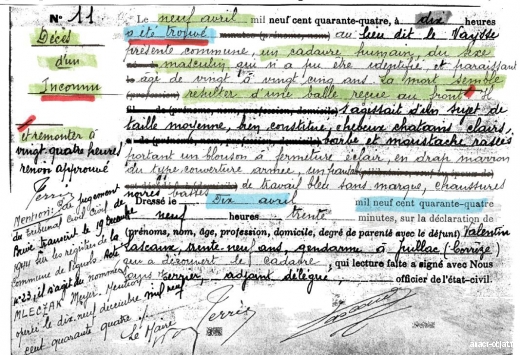 N° 11
Décès
d'un
Inconnu
et remonter à
vingt quatre heures
renvoi approuvé
Terris
Mention: Par jugement
du Tribunal Civil de
Brive transcrit le 19 Decembre
1944 sur les registres de la
commune de
n° 23, il s'agit de nommé
MLECZAK Meyer. Mention
opéré le dix neuf decembre mil neuf
cent quarante quatre.
Le Maire
Terris
Le neuf avril mil neuf cent quarante-quatre, à dix heures
a été trouvé au lieu dit le
présent commune, un cadavre humain, du sexe
masculin qui n'a pu être identifié, et paraissant
âgé de vingt à vingt cinq ans. La mort semble
résulter d'une balle reçue au front. Il
s'agissait d'un sujet de
taille moyenne, bien constitué, cheveux chatains clairs,
barbe et moustache rasées
portant un blouson à fermeture éclair, en drap marron
du type couverture armée, un
de travail bleu sans marque, chaussures
noires basses
Dressé le Dix avril mil neuf cent quarante-quatre
neuf heures trente minutes, sur la déclaration de
(prénoms, nom, âge, profession, domicile, degré de parenté avec le défunt) Valentin
Lascaux, trente neuf ans, gendarme à Juillac (Corrèze)
qui a découvert le cadavre, qui lecture faite a signé avec Nous
adjoint délégué, officier de l'état-civil.